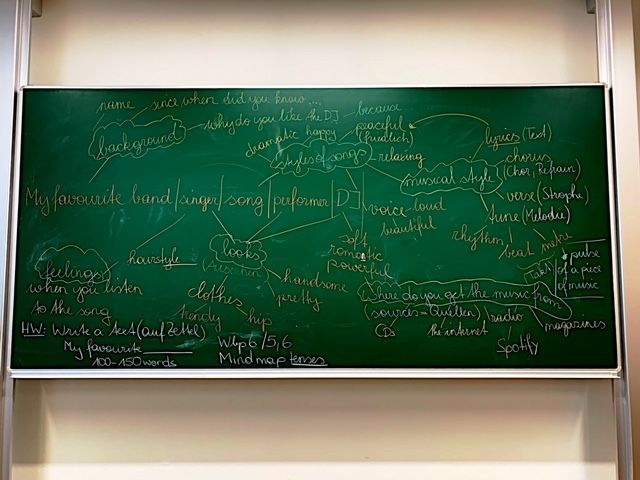 name since when did you know ....
why do you like the DJ because
background
dramatic happy peaceful
(friedlich)
styles of songs relaxing
lyrics (Text)
chorus
(Chor, Refrain)
musical style
verse (Strophe)
tune (Melodie)
My favourite band/singer/song/performer/DJ
voice loud
beautiful
rhythm beat metre
(Takt) pulse
of a piece
of music
soft
romantic
powerful
hairstyle
looks
(Aussehen)
handsome
pretty
clothes
trendy hip
feelings
when you listen
to the song
Where do you get the music from
(sources = Quellen)
CDs the internet radio magazines
Spotify
HW: Write a text (auf Zettel)
My favourite ______
100-150 words
Wbp 6/5,6
Mindmap tenses